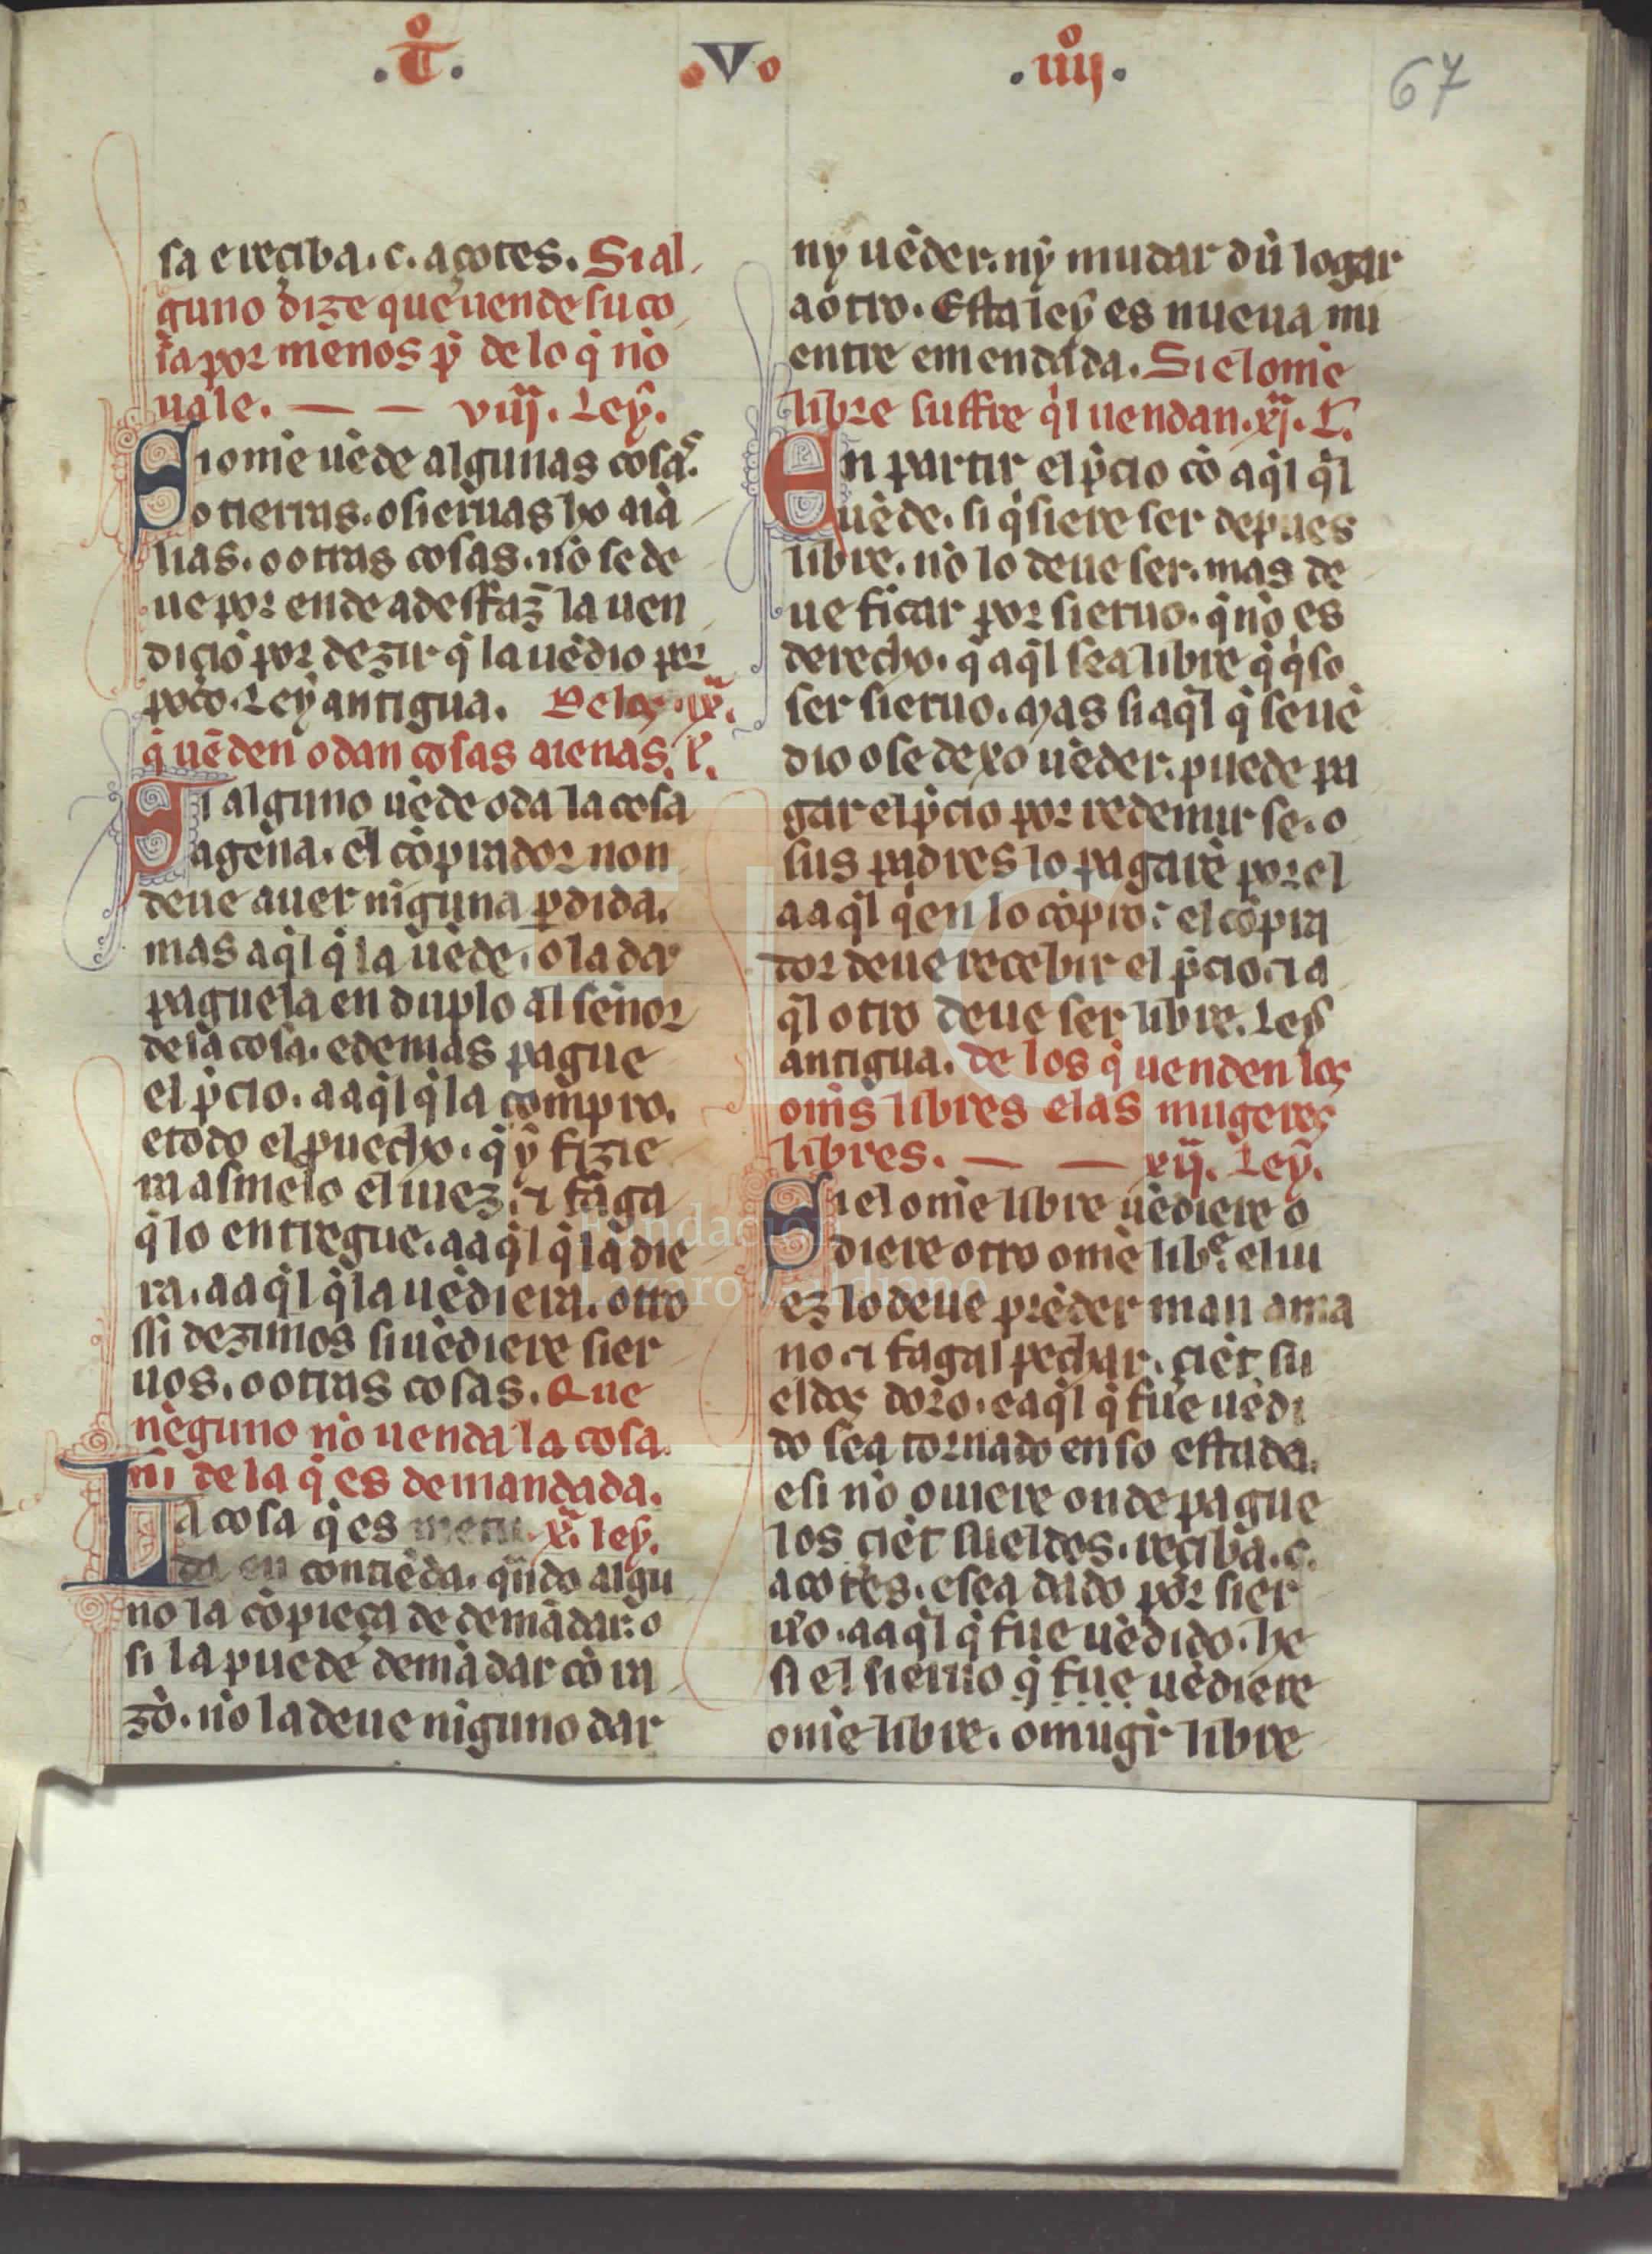 .t̊. .v. .iiij̊.
67
sa e reçiba .c. açotes. Si al
guno dize que uende su co
sa por menos p̃ de lo q̃ nõ
uale. — — viiij. Ley.
Si ome uẽde algunas cosas
o tierras. o sieruas ho aia
lias. o otras cosas. nõ se de
ue por ende a desffaz̃ la uen
diçiõ por dezir q̃ la uẽdio por
poco. Ley antigua. De los .ix.
q̃ uẽden o dan cosas aienas. L.
Si alguno uẽde o da la cosa
agena. el cõprador non
deue auer niguna ꝑdida.
mas aq̃l q̃ la uẽde. o la da
paguela en duplo al señor
de la cosa. e demas pague
el p̃cio. a aq̃l q̃ la compro.
e todo el puecho. q̃ y fizie
ra asmelo el iuez. ⁊ faga
q̃ lo entregue. a aq̃l q̃ la die
ra. a aq̃l q̃ la uẽdiera. otro
ssi dezimos si uẽdiere sier
uos. o otras cosas. Que
nẽguno nõ uenda la cosa.
nĩ de la q̃ es demandada.
La cosa q̃ es metu .x. ley.
da en contiẽda. qñdo algu
no la cõpieça de demãdar. o
si la puede demãdar cõ ra
zõ. nõ la deue niguno dar
ny uẽder. nỹ mudar dũ logar
a otro. Esta ley es nueua mi
entre emendada. Si el ome
libre suffre q̃l uendan. xj. L.
En partir el p̃cio cõ aq̃l q̃l
uẽde. si q̃siere ser depues
libre. nõ lo deue ser. mas de
ue ficar por sieruo. q̃ nõ es
derecho. q̃ aq̃l sea libre q̃ q̃so
ser sieruo. mas si aq̃l q̃ se uẽ
dio o se dexo uẽder. puede pa
gar el p̃cio por redemir se. o
sus padres lo pagarẽ por el
a aq̃l q̃en lo cõpro: el cõpra
dor deue recebir el p̃cio. ⁊ a
q̃l otro deue ser libre. Ley
antigua. de los q̃ uenden los
oms̃ libres e las mugeres
libres. — — xij. Ley.
Si el ome libre uẽdiere o
diere otro ome libe. el iu
ez lo deue prẽder man a ma
no ⁊ fagal pechar. çiẽt su
eldos doro. e aq̃l q̃ fue uẽdi
do sea tornado en so estado.
e si nõ ouiere onde pague
los çiẽt sueldos. reçiba .c.
açotes. e sea dado por sier
uo. a aq̃l q̃ fue uẽdido. he
si el sieruo q̃ fue uẽdiere
ome libre. o mugr̃ libre
Fundación
Lázaro Galdiano